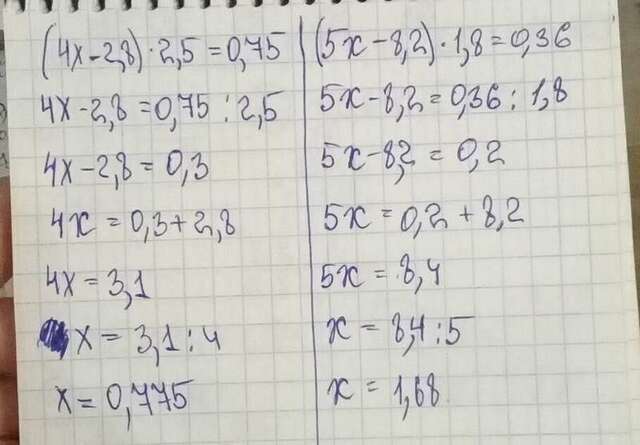 (4x-2,8)·2,5=0,75
4x-2,8=0,75:2,5
4x-2,8=0,3
4x=0,3+2,8
4x=3,1
x=3,1:4
x=0,775
(5x-8,2)·1,8=0,36
5x-8,2=0,36:1,8
5x-8,2=0,2
5x=0,2+8,2
5x=8,4
x=8,4:5
x=1,68